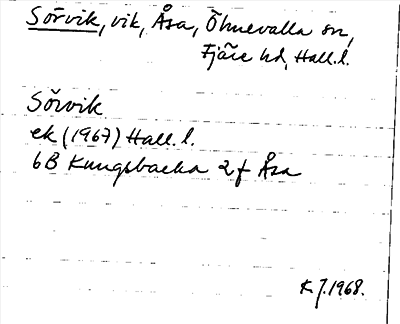 Sörvik, vik, Åsa, Ölmevalla sn,
Fjäre hd, Hall. l.
Sörvik
ek (1967) Hall. l.
6B Kungsbacka 2f Åsa
K.J. 1968.